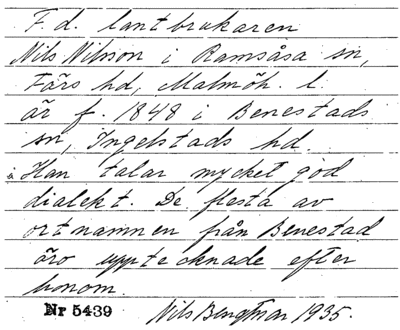 F d. lantbrukaren
Nils Nilsson i Ramsåsa sn,
Färs hd, Malmöh. l.
är f. 1848 i Benestads
sn, Ingelstads hd.
Han talar mycket god
dialekt. De flesta av
ortnamnen från Benestad
äro upptecknade efter
honom.
Nr 5439 Nils Bengtsson 1935.